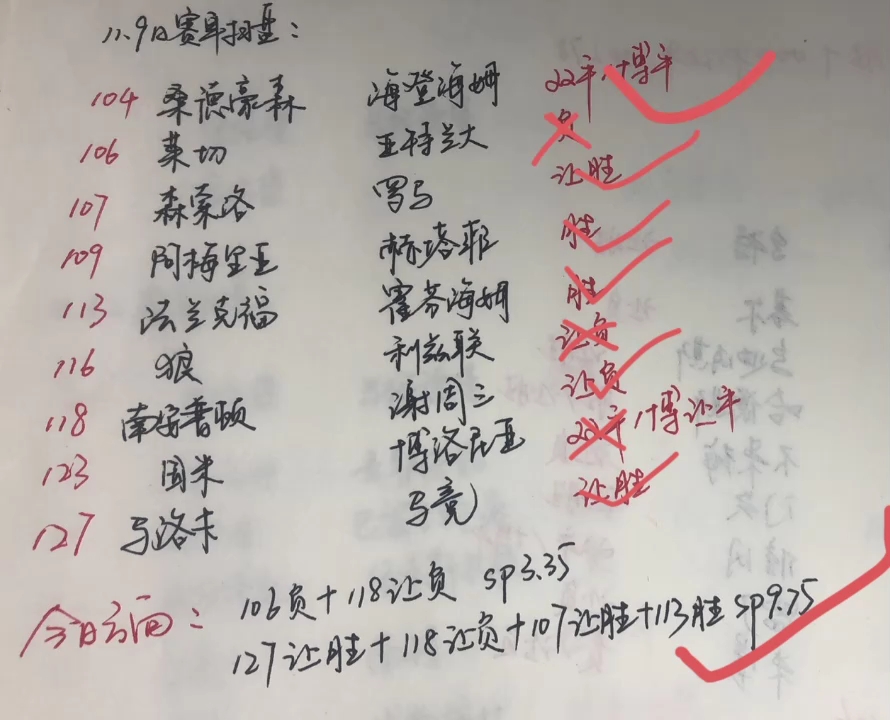 11.9日赛事扫盘：
104 桑德豪森 海登海姆 双平/博平
106 莱切 亚特兰大 负
107 森索洛 罗马 让胜
109 阿梅里亚 赫塔菲 胜
113 法兰克福 霍芬海姆 胜
116 狼 利兹联 让负
118 南安普顿 谢周三 让负
123 国米 博洛尼亚 双平/博让平
127 马洛卡 马竞 让胜
今日方面：
106负+118让负 sp3.35
127让胜+118让负+107让胜+113胜 sp9.75